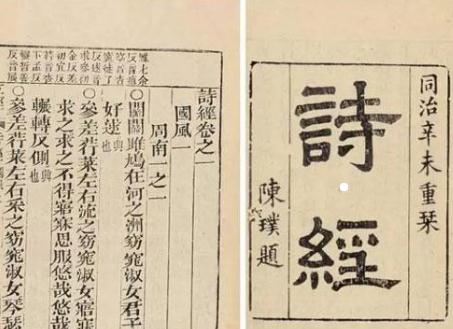 同治辛未重栞
詩經
陳璞題
詩經卷之一
國風一
周南一之一
○關關雎鳩在河之洲窈窕淑女君子
好逑興也
○參差荇菜左右流之窈窕淑女寤寐
求之求之不得寤寐思服悠哉悠哉
輾轉反側興也
○參差荇菜左右采之窈窕淑女琴瑟